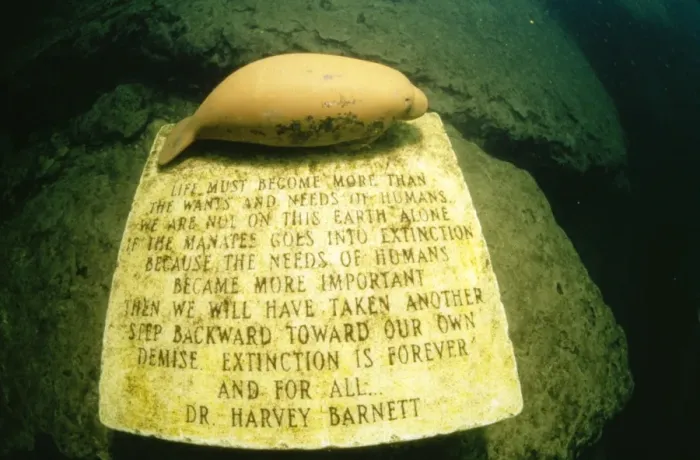 LIFE MUST BECOME MORE THAN
THE WANTS AND NEEDS OF HUMANS.
WE ARE NOT ON THIS EARTH ALONE
IF THE MANATEE GOES INTO EXTINCTION
BECAUSE THE NEEDS OF HUMANS
BECAME MORE IMPORTANT
THEN WE WILL HAVE TAKEN ANOTHER
STEP BACKWARD TOWARD OUR OWN
DEMISE. EXTINCTION IS FOREVER
AND FOR ALL...
DR. HARVEY BARNETT